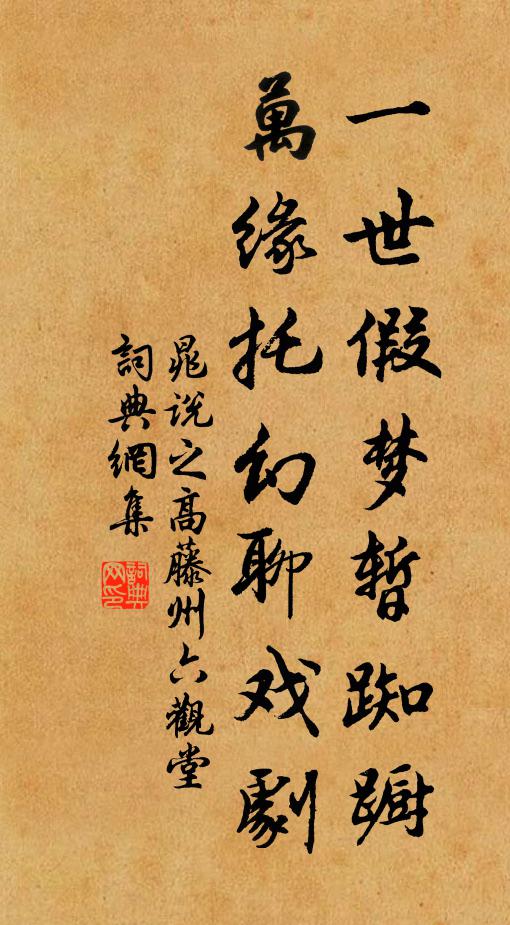 一世假梦暂踟蹰
萬缘托幻聊戏劇
晁说之高藤州六觀堂
詞典網集
詞典网印